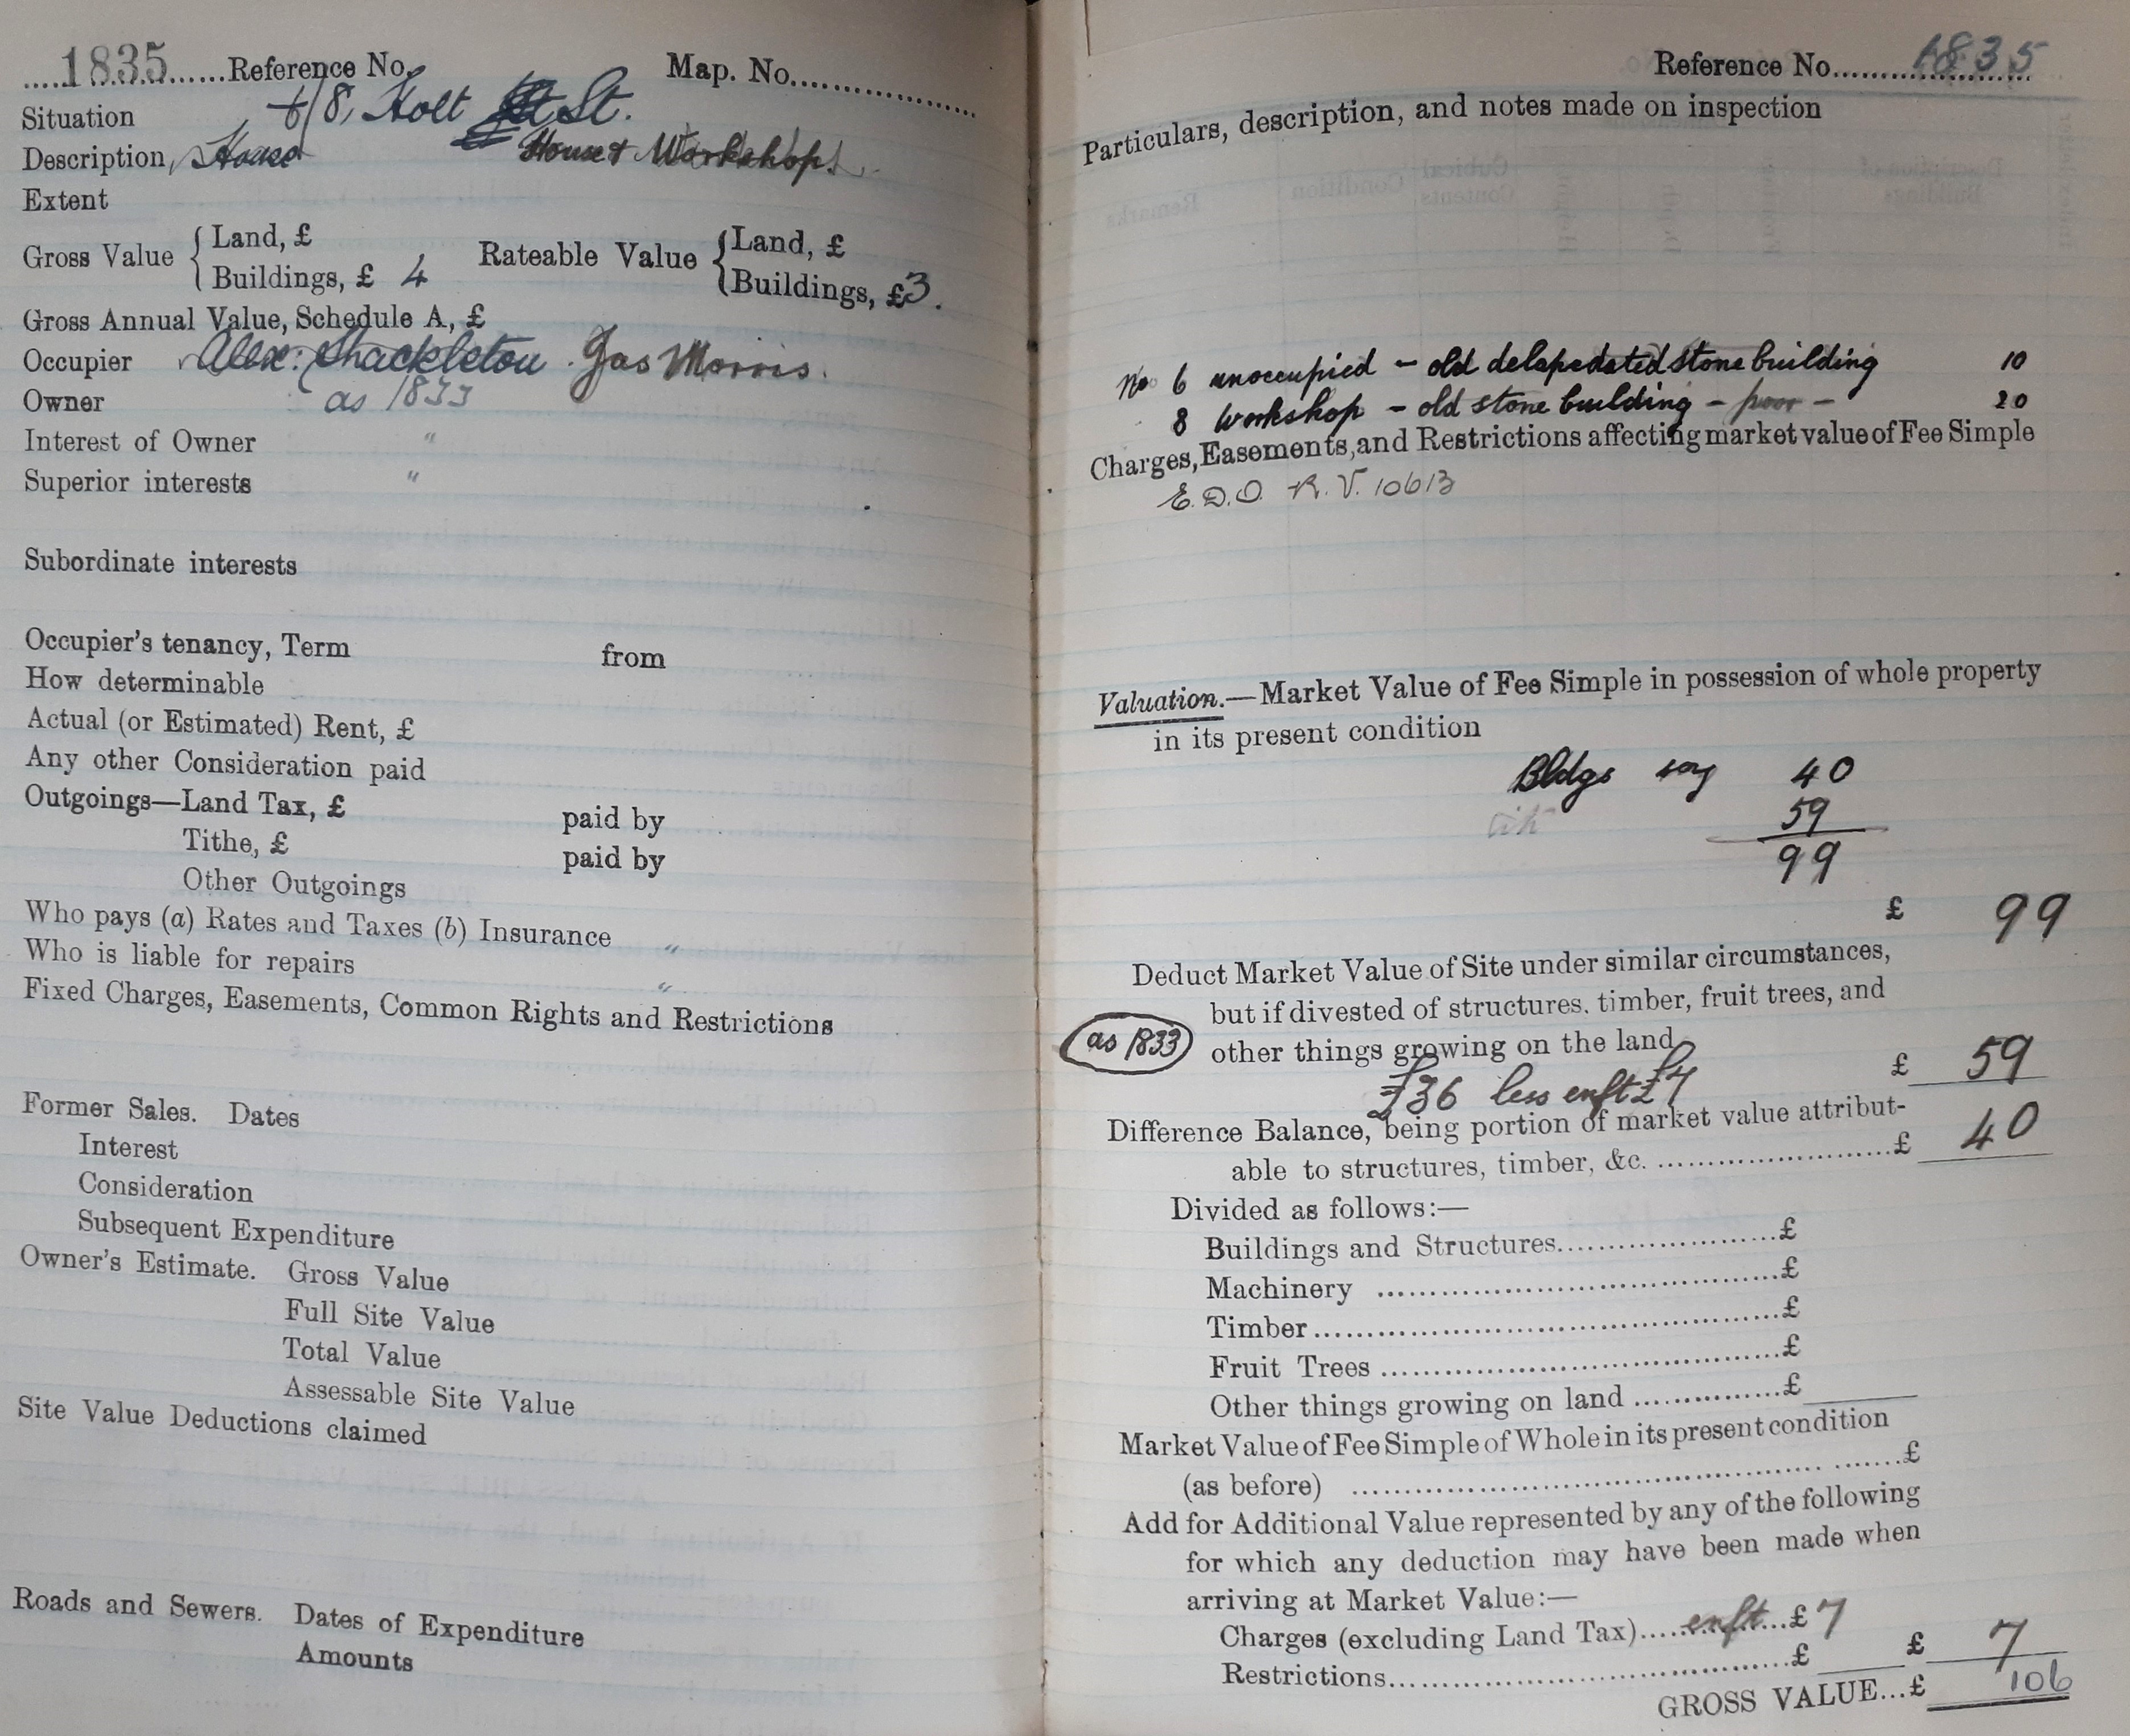 1835 Reference No. Map. No.
Situation 6/8, Holt St.
Description, House House & Workshop.
Extent
Gross Value { Land, £ Rateable Value { Land, £
Buildings, £ 4 Buildings, £3.
Gross Annual Value, Schedule A, £
Occupier Alex: Shackleton. Jas Morris.
Owner as 1833
Interest of Owner "
Superior interests "
Subordinate interests
Occupier's tenancy, Term from
How determinable
Actual (or Estimated) Rent, £
Any other Consideration paid
Outgoings—Land Tax, £ paid by
Tithe, £ paid by
Other Outgoings
Who pays (a) Rates and Taxes (b) Insurance "
Who is liable for repairs "
Fixed Charges, Easements, Common Rights and Restrictions
Former Sales. Dates
Interest
Consideration
Subsequent Expenditure
Owner's Estimate. Gross Value
Full Site Value
Total Value
Assessable Site Value
Site Value Deductions claimed
Roads and Sewers. Dates of Expenditure
Amounts
Reference No. 1835
Particulars, description, and notes made on inspection
No 6 unoccupied - old delapedated stone building 10
8 workshop - old stone building - poor - 20
Charges, Easements, and Restrictions affecting market value of Fee Simple
E.D.O. R.V. 10613
Valuation.—Market Value of Fee Simple in possession of whole property
in its present condition
Bldgs say 40
59
99
£ 99
Deduct Market Value of Site under similar circumstances,
but if divested of structures. timber, fruit trees, and
as 1833 other things growing on the land
£ 59
less enft £7
Difference Balance, being portion of market value attribut-
able to structures, timber, &c. £ 40
Divided as follows:—
Buildings and Structures £
Machinery £
Timber £
Fruit Trees £
Other things growing on land £
Market Value of Fee Simple of Whole in its present condition
(as before) £
Add for Additional Value represented by any of the following
for which any deduction may have been made when
arriving at Market Value:—
Charges (excluding Land Tax) enft £ 7
Restrictions £ £ 7
GROSS VALUE...£ 106